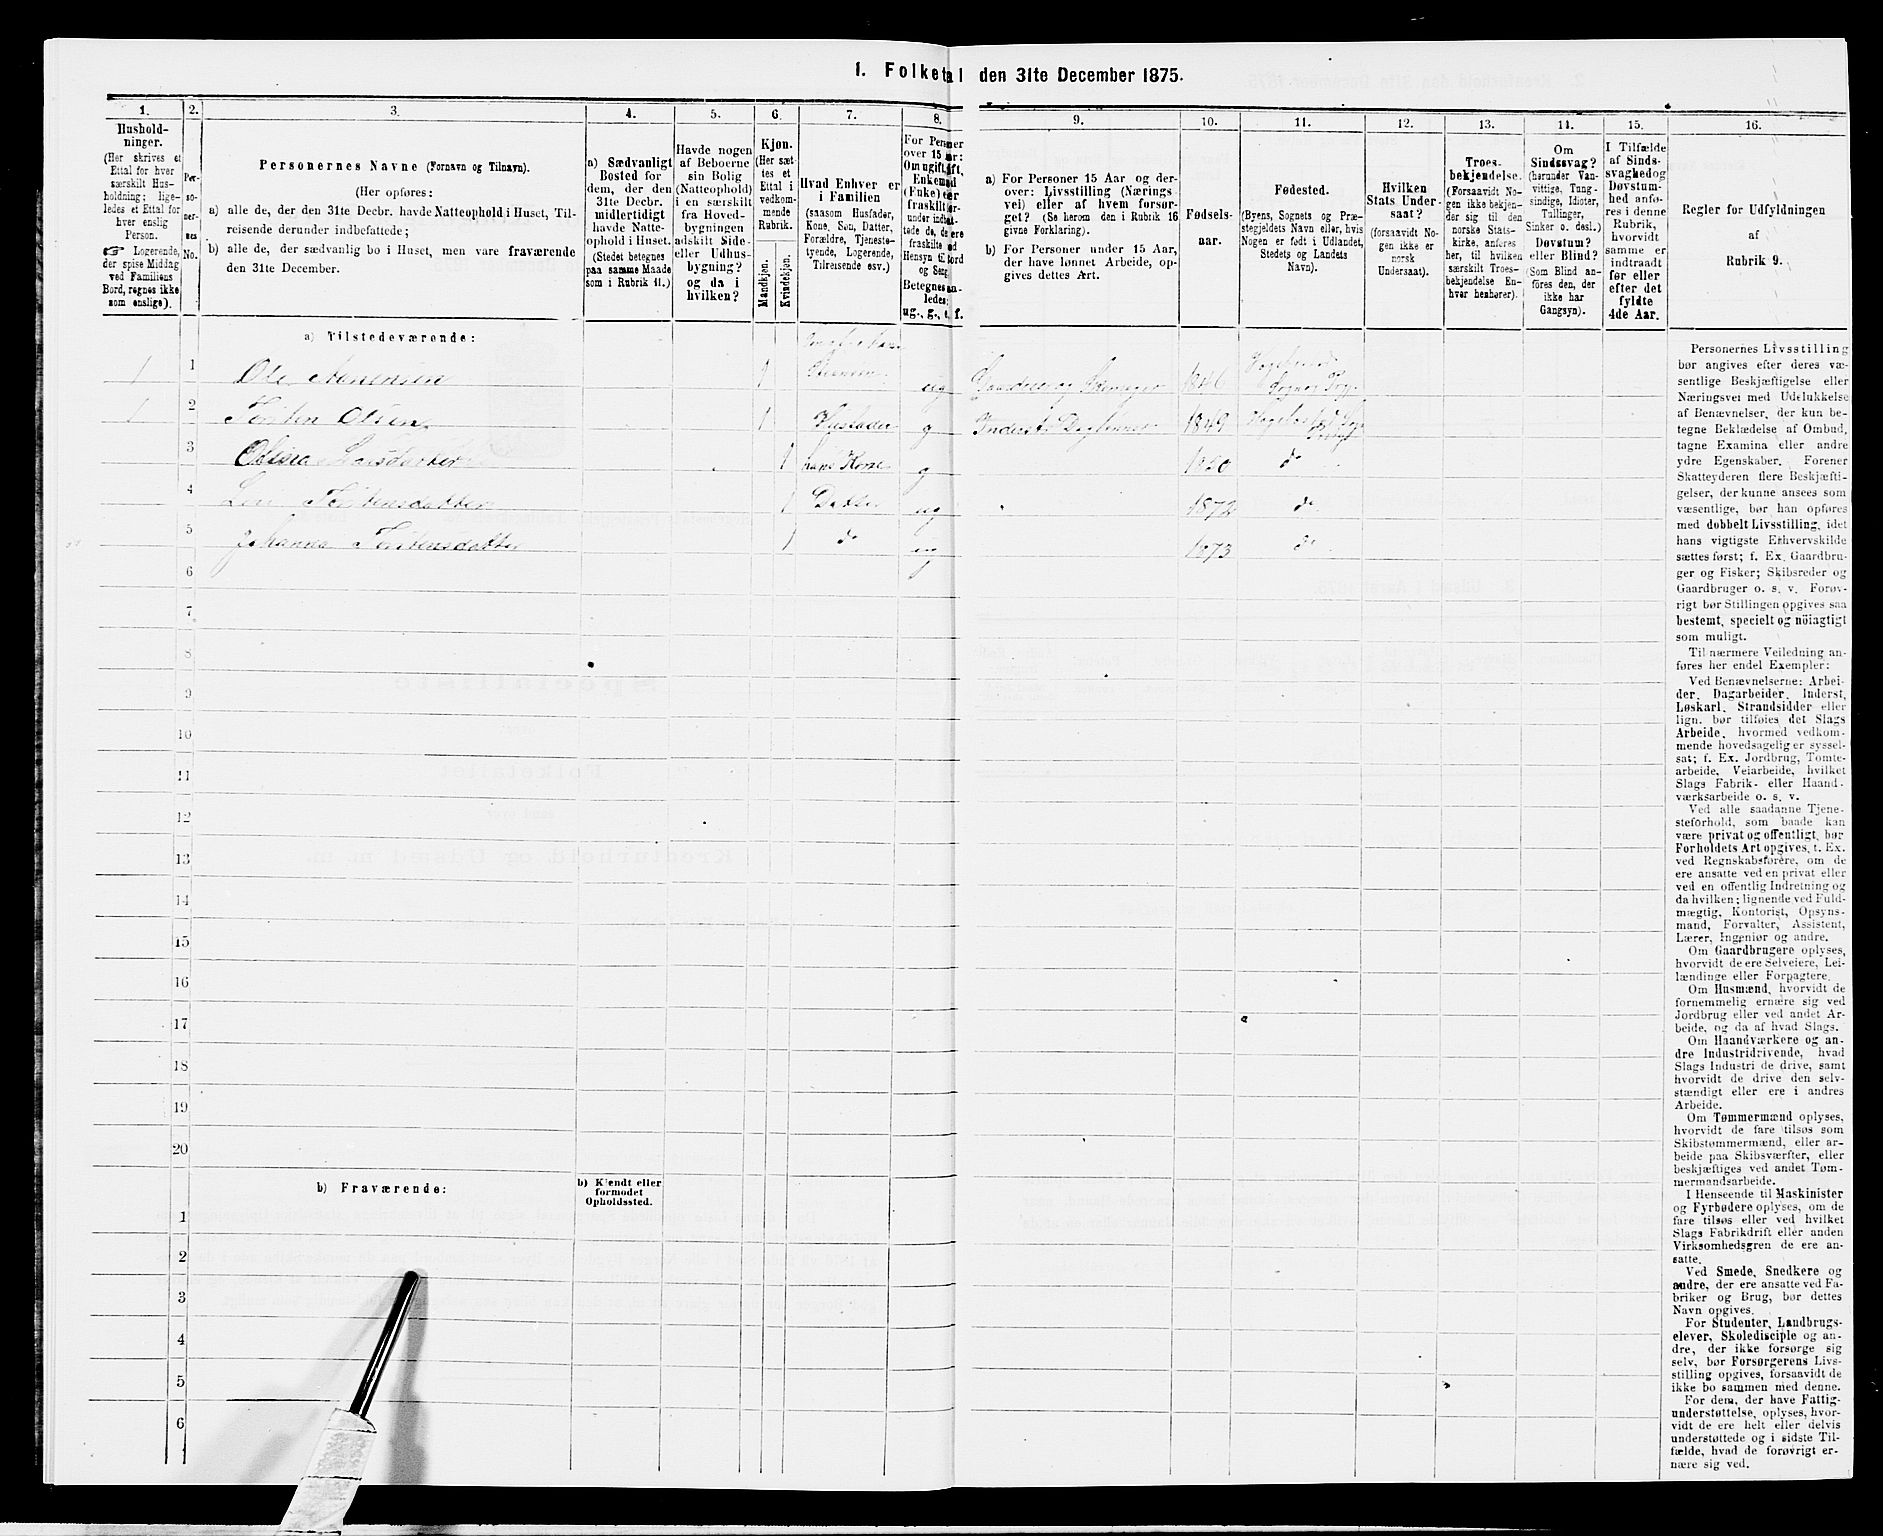 1. Folketal den 31te December 1875.
1.
Hushold-
ninger.
(Her skrives et
Ettal for hver
særskilt Hus-
holdning; lige-
ledes et Ettal for
hver enslig
Person.
☞ Logerende,
der spise Middag
ved Familiens
Bord, regnes ikke
som enslige).
2.
Per-
so-
ner-
nes
No.
3.
Personernes Navne (Fornavn og Tilnavn).
(Her opføres:
a) alle de, der den 31te Decbr. havde Natteophold i Huset, Til-
reisende derunder indbefattede;
b) alle de, der sædvanlig bo i Huset, men vare fraværende
den 31te December.
4.
a) Sædvanligt
Bosted for
dem, der den
31te Decbr.
midlertidigt
havde Natte-
ophold i Huset.
(Stedet betegnes
paa samme Maade
som i Rubrik 11.)
5.
Havde nogen
af Beboerne
sin Bolig
(Natteophold)
i en særskilt
fra Hoved-
bygningen
adskilt Side-
eller Udhus-
bygning?
og da i
hvilken?
6.
Kjøn.
(Her sæt-
tes et
Ettal i
vedkom-
mende
Rubrik.
Mandkjøn.
Kvindekjøn.
7.
Hvad Enhver er
i Familien
(saasom Husfader,
Kone, Søn, Datter,
Forældre, Tjeneste-
tyende, Logerende,
Tilreisende osv.)
8.
For Personer
over 15 Aar:
Om ugift, gift,
Enkemand
(Enke) eller
fraskilt
Betegnes saa-
ledes:
ug., g., e., f.
9.
a) For Personer 15 Aar og der-
over: Livsstilling (Nærings-
vei) eller af hvem forsør-
get? (Se herom den i Rubrik 16
givne Forklaring).
b) For Personer under 15 Aar,
der have lønnet Arbeide, op-
gives dettes Art.
10.
Fødsels-
aar.
11.
Fødested.
(Byens, Sognets og Præ-
stegjeldets Navn eller, hvis
Nogen er født i Udlandet,
Stedets og Landets
Navn).
12.
Hvilken
Stats Under-
saat?
(forsaavidt No-
gen ikke er
norsk
Undersaat).
13.
Troes-
bekjendelse.
(Forsaavidt No-
gen ikke bekjen-
der sig til den
norske Stats-
kirke, anføres
her, til hvilken
særskilt Troes-
bekjendelse En-
hver henhører).
14.
Om
Sindssvag?
(herunder Van-
vittige, Tung-
sindige, Idioter,
Tullinger,
Sinker o. desl.)
Døvstum?
eller Blind?
(Som Blind an-
føres den, der
ikke har
Gangsyn).
15.
I Tilfælde
af Sinds-
svaghed og
Døvstum-
hed anfø-
res i denne
Rubrik,
hvorvidt
samme er
indtraadt
før eller
efter det
fyldte
4de Aar.
16.
Regler for Udfyldningen
af
Rubrik 9.
a) Tilstedeværende:
1 1 Ole 1 ug 1846
1 2 Olsen 1 Husfader g Inderst 1849
3 Larsdatter 1 hans Kone g 1850 do
4 1 Datter ug 1872 do
5 Johanna 1 do ug 1873 do
6
7
8
9
10
11
12
13
14
15
16
17
18
19
20
b) Fraværende:
b) Kjendt eller
formodet
Opholdssted.
1
2
3
4
5
6
Personernes Livsstilling
bør angives efter deres væ-
sentlige Beskjæftigelse eller
Næringsvei med Udelukkelse
af Benævnelser, der kun be-
tegne Beklædelse af Ombud,
tagne Examina eller andre
ydre Egenskaber. Forener
Skatteyderen flere Beskjæfti-
gelser, der kunne ansees som
væsentlige, bør han opføres
med dobbelt Livsstilling, idet
hans vigtigste Erhvervskilde
sættes først; f. Ex. Gaardbru-
ger og Fisker; Skibsreder og
Gaardbruger o. s. v. Forøv-
rigt bør Stillingen opgives saa
bestemt, specielt og nöiagtigt
som muligt.
Til nærmere Veiledning an-
føres her endel Exempler:
Ved Benævnelserne: Arbei-
der, Dagarbeider, Inderst,
Løskarl, Strandsidder eller
lign. bør tilføies det Slags
Arbeide, hvormed vedkom-
mende hovedsagelig er syssel-
sat; f. Ex. Jordbrug, Tomte-
arbeide, Veiarbeide, hvilket
Slags Fabrik- eller Haand-
værksarbeide o. s. v.
Ved alle saadanne Tjene-
steforhold, som baade kan
være privat og offentligt, bør
Forholdets Art opgives, t. Ex.
ved Regnskabsførere, om de
ere ansatte ved en privat eller
ved en offentlig Indretning og
da hvilken; lignende ved Fuld-
mægtig, Kontorist, Opsyns-
mand, Forvalter, Assistent,
Lærer, Ingeniør og andre.
Om Gaardbrugere oplyses,
hvorvidt de ere Selveiere, Lei-
lændinge eller Forpagtere.
Om Husmænd, hvorvidt de
fornemmelig ernære sig ved
Jordbrug eller ved andet Ar-
beide, og da af hvad Slags.
Om Haandværkere og an-
dre Industridrivende, hvad
Slags Industri de drive, samt
hvorvidt de drive den selv-
stændigt eller ere i andres
Arbeide.
Om Tømmermænd oplyses,
hvorvidt de fare tilsøs som
Skibstømmermænd, eller ar-
beide paa Skibsværfter, eller
beskjæftiges ved andet Tøm-
mermandsarbeide.
I Henseende til Maskinister
og Fyrbødere oplyses, om de
fare tilsøs eller ved hvilket
Slags Fabrikdrift eller anden
Virksomhedsgren de ere an-
satte.
Ved Smede, Snedkere og
andre, der ere ansatte ved Fa-
briker og Brug, bør dettes
Navn opgives.
For Studenter, Landbrugs-
elever, Skoledisciple og an-
dre, der ikke forsørge sig
selv, bør Forsørgerens Livs-
stilling opgives, forsaavidt de
ikke bo sammen med denne.
For dem, der have Fattig-
understøttelse, oplyses, hvor-
vidt de ere helt eller delvis
understøttede og i sidste Til-
fælde, hvad de forøvrigt er-
nære sig ved.